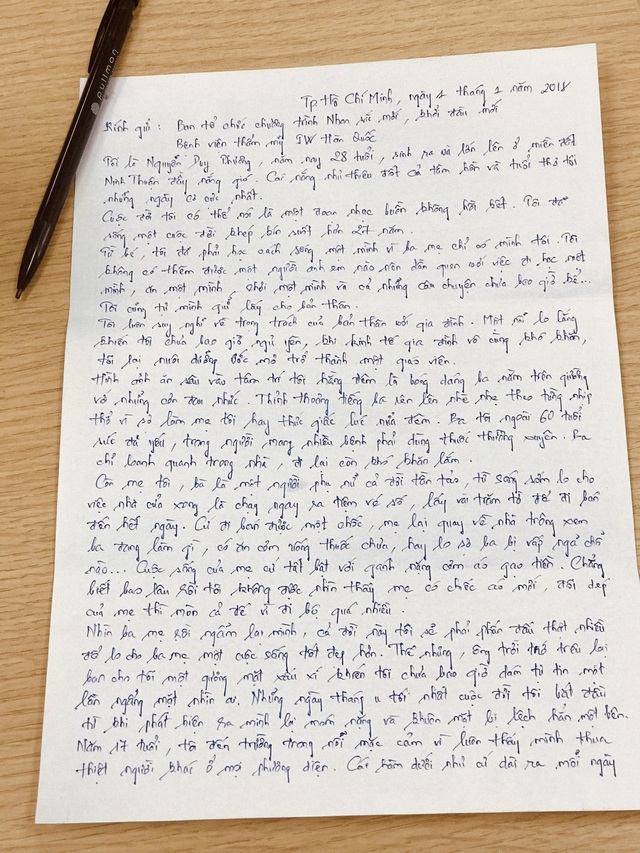 pullman
Tp Hồ Chí Minh, ngày 4 tháng 1 năm 2018
Kính gửi : Ban tổ chức chương trình Nhan sắc mới, khởi đầu mới
Bệnh viện thẩm mỹ JW Hàn Quốc
Tôi là Nguyễn Duy Phương, năm nay 28 tuổi, sinh ra và lớn lên ở miền đất
Ninh Thuận đầy nắng gió. Cái nắng như thiêu đốt cả tâm hồn và tuổi thơ tôi
những ngày cơ cực nhất.
Cuộc đời tôi có thể nói là một đoạn nhạc buồn không hồi kết. Tôi đã
sống một cuộc đời khép kín suốt hơn 27 năm.
Từ bé, tôi đã phải học cách sống một mình vì ba mẹ chỉ có mình tôi. Tôi
không có thêm được một người anh em nào nên dần quen với việc đi học một
mình, ăn một mình, chơi một mình và cả những câu chuyện chưa bao giờ kể...
Tôi cũng tự mình giữ lấy cho bản thân.
Tôi luôn suy nghĩ về trọng trách của bản thân với gia đình. Một nỗi lo lắng
khiến tôi chưa bao giờ ngủ yên, khi kinh tế gia đình vô cùng khó khăn,
tôi lại nuôi dưỡng ước mơ trở thành một giáo viên.
Hình ảnh ăn sâu vào tâm trí tôi hằng đêm là bóng dáng ba nằm trên giường
với những cơn đau nhức. Thỉnh thoảng tiếng ba rên lên nhè nhẹ theo từng nhịp
thở vì sợ làm mẹ tôi hay thức giấc lúc nửa đêm. Ba tôi ngoài 60 tuổi
sức đã yếu, trong người mang nhiều bệnh phải dùng thuốc thường xuyên. Ba
chỉ loanh quanh trong nhà, đi lại còn khó khăn lắm.
Còn mẹ tôi, bà là một người phụ nữ cả đời tần tảo, từ sáng sớm lo cho
việc nhà cửa xong là chạy ngay ra tiệm vé số, lấy vài trăm tờ để đi bán
đến hết ngày. Cứ đi bán được một chốc, mẹ lại quay về nhà trông xem
ba đang làm gì, có ăn cơm uống thuốc chưa, hay lo sợ ba bị vấp ngã chỗ
nào... Cuộc sống của mẹ cứ tất bật với gánh nặng cơm áo gạo tiền. Chẳng
biết bao lâu rồi tôi không được nhìn thấy mẹ có chiếc áo mới, đôi dép
của mẹ thì mòn cả đế vì đi bộ quá nhiều.
Nhìn ba mẹ rồi ngẫm lại mình, cả đời này tôi sẽ phải phấn đấu thật nhiều
để lo cho ba mẹ một cuộc sống tốt đẹp hơn. Thế nhưng, ông trời trớ trêu lại
ban cho tôi một gương mặt xấu xí khiến tôi chưa bao giờ dám tự tin một
lần ngẩng mặt nhìn ai. Những ngày tháng u tối nhất cuộc đời tôi bắt đầu
từ khi phát hiện ra mình bị móm nặng và khuôn mặt bị lệch hẳn một bên.
Năm 17 tuổi, tôi đến trường trong nỗi mặc cảm vì luôn thấy mình thua
thiệt người khác ở mọi phương diện. Cái hàm dưới như cứ dài ra mỗi ngày